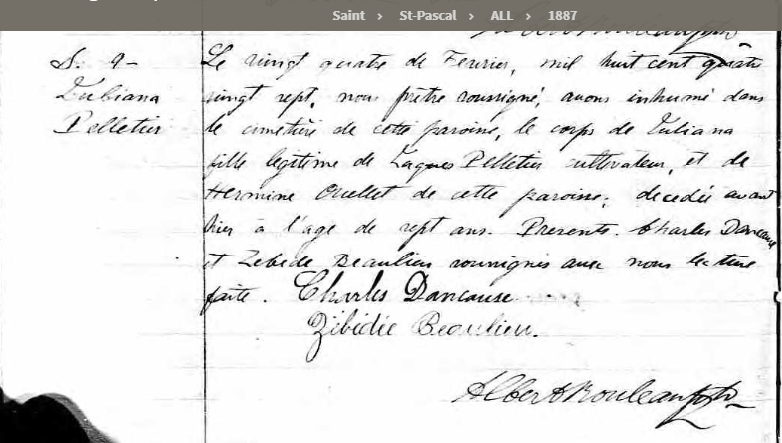 Saint › St-Pascal › ALL › 1887
S. 9-
Tubiana
Pelletier
Le vingt quatre de Fevrier, mil huit cent quatre
vingt sept, nous prêtre soussigné, avons inhumé dans
le cimetière de cette paroisse, le corps de Tubiana
fille legitime de Jaques Pelletier cultivateur, et de
Hermine Ouellet de cette paroisse, decedée avant
hier à l'age de sept ans. Presents. Charles Dancause
et Zebede Beaulieu soussignés avec nous lecture
faite. Charles Dancause
Zibidée Beaulieu.
Albert Rouleau ptr